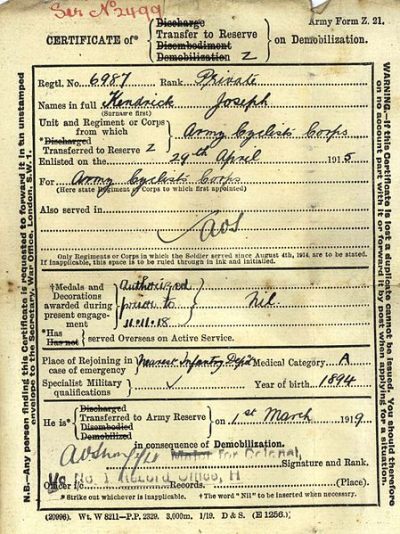 Ser Nº 2499
Army Form Z. 21.
CERTIFICATE of*
Discharge
Transfer to Reserve
Disembodiment
Demobilization Z
on Demobilization.
Regtl. No. 6987 Rank Private
Names in full Kendrick Joseph
(Surname first)
Unit and Regiment or Corps
from which
*Discharged
Transferred to Reserve Z
Army Cyclists Corps
Enlisted on the 29th April 1915
For Army Cyclists Corps
(Here state Regiment or Corps to which first appointed)
Also served in
Only Regiments or Corps in which the Soldier served since August 4th, 1914, are to be stated.
If inapplicable, this space is to be ruled through in ink and initialled.
†Medals and
Decorations
awarded during
present engage-
ment
Authorised
prior to
11.11.18
Nil
*Has
Has not
served Overseas on Active Service.
Place of Rejoining in
case of emergency
Nearest Infantry Depot
Medical Category A
Specialist Military
qualifications
Year of birth 1894
He is*
Discharged
Transferred to Army Reserve
Disembodied
Demobilized
on 1st March 1919
in consequence of Demobilization.
Signature and Rank.
No. 1 Record Office, H
Officer i/c Records. (Place).
*Strike out whichever is inapplicable. † The word "Nil" to be inserted when necessary.
(20996). Wt. W 8211—P.P. 2329. 3,000m. 1/19. D & S. (E 1256.)
N.B.—Any person finding this Certificate is requested to forward it in an unstamped
envelope to the Secretary War Office, London, S.W. 1.
WARNING.—If this Certificate is lost a duplicate cannot be issued. You should therefore
on no account part with it or forward it by post when applying for a situation.